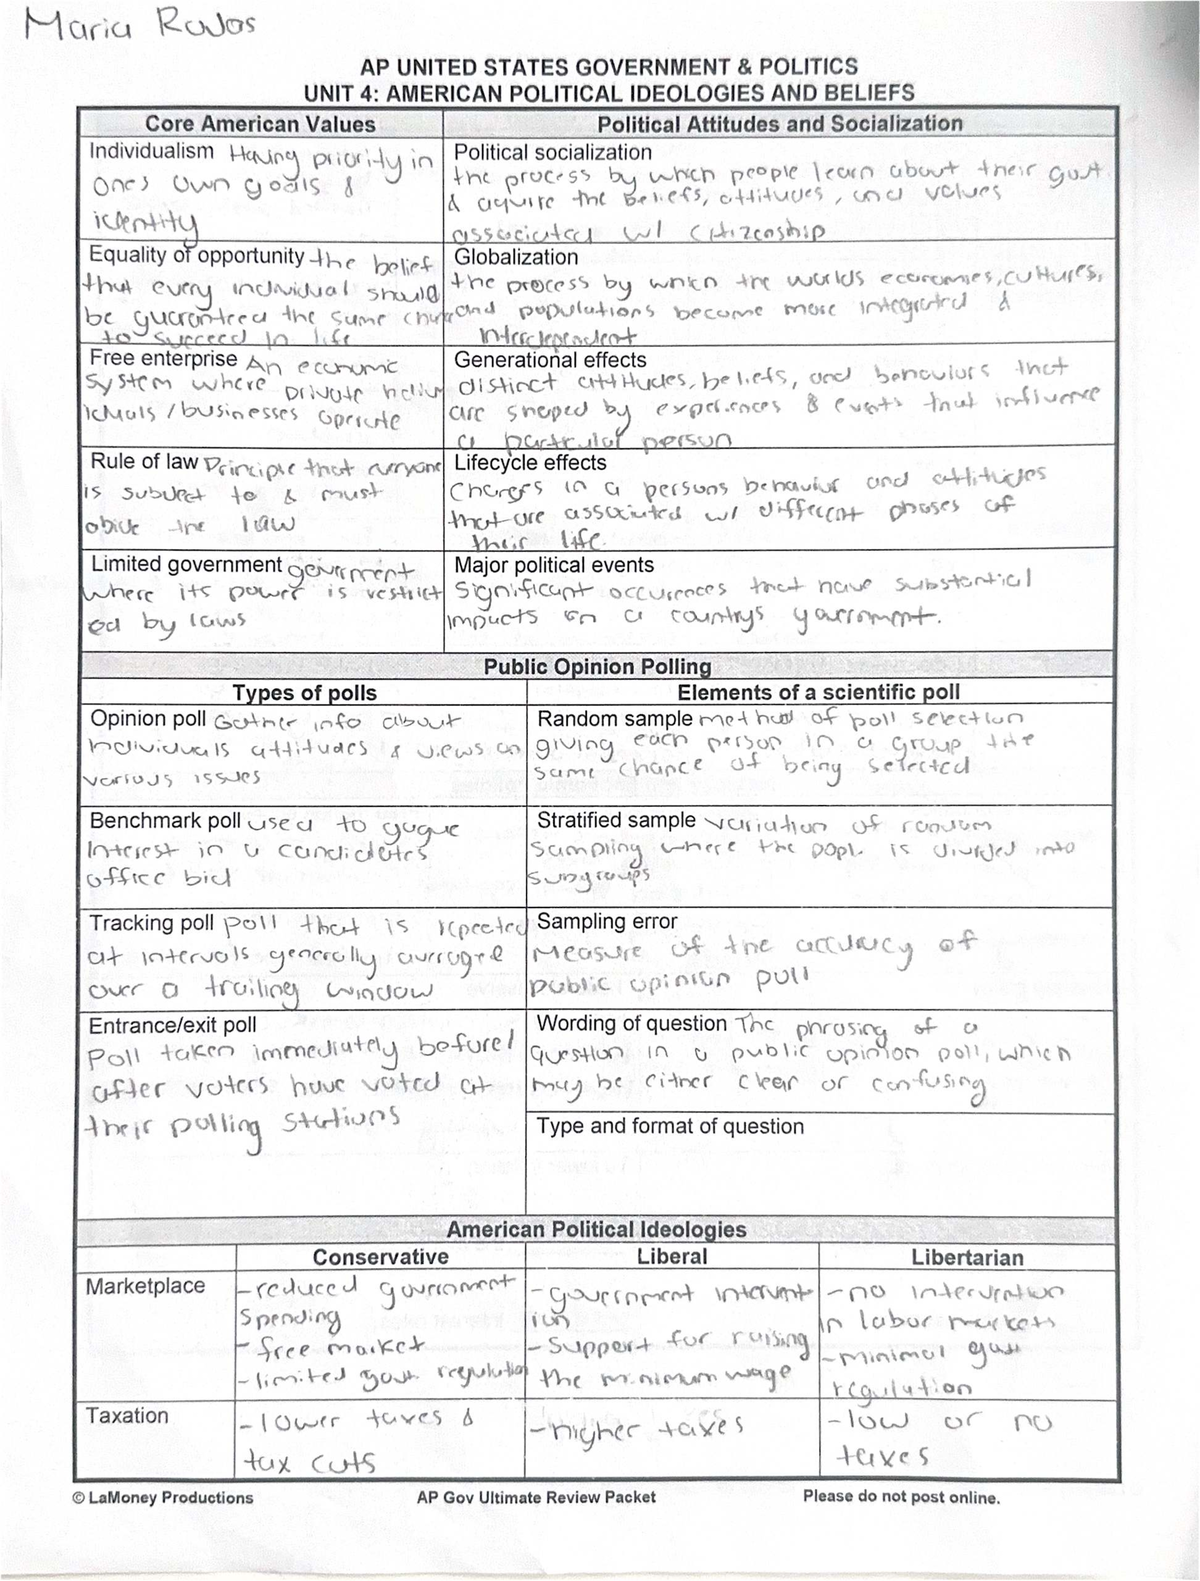 Maria Rojas
AP UNITED STATES GOVERNMENT & POLITICS
UNIT 4: AMERICAN POLITICAL IDEOLOGIES AND BELIEFS
Core American Values
Individualism Having priority in
ones own goals &
identity
Equality of opportunity the belief
that every individual should
be guaranteed the same
to succeed in life
Free enterprise An economic
system where private
/businesses operate
Rule of law Principle that everyone
is subject to & must
obide the law
Limited government government
where its power is restrict
ed by laws
Political Attitudes and Socialization
Political socialization
the process by which people learn about their govt
& aquire the beliefs, attitudes, and values
associated w/ citizenship
Globalization
the process by which the worlds economies, cultures,
and populations become more integrated &
interdependent
Generational effects
distinct attitudes, beliefs, and behaviors that
are shaped by experiences & events that influence
a particular person
Lifecycle effects
Changes in a persons behavior and attitudes
that are associated w/ different phases of
their life.
Major political events
Significant occurrences that have substantial
impacts on a countrys government.
Public Opinion Polling
Types of polls
Opinion poll Gather info about
individuals attitudes & views on
various issues
Benchmark poll used to gague
interest in a candidates
office bid
Tracking poll poll that is repeated
at intervals generally averaged
over a trailing window
Entrance/exit poll
Poll taken immediately before/
after voters have voted at
their polling stations
Elements of a scientific poll
Random sample method of poll selection
giving each person in a group the
same chance of being selected
Stratified sample variation of random
sampling where the popl. is divided into
subgroups
Sampling error
Measure of the accuracy of
public opinion poll
Wording of question The phrasing of a
question in a public opinion poll, which
may be either clear or confusing
Type and format of question
American Political Ideologies
Conservative Liberal Libertarian
Marketplace
-reduced government
spending
- free market
-limited govt regulation
- government intervent
ion
- Support for raising
the minimum wage
-no intervention
in labor markets
-minimal govt
regulation
Taxation
-lower taxes &
tax cuts
-higher taxes
-low or no
taxes
© LaMoney Productions AP Gov Ultimate Review Packet Please do not post online.